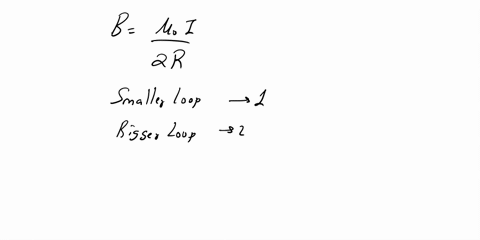 B = μ₀ I / 2R
Smaller Loop → 1
Bigger Loop → 2